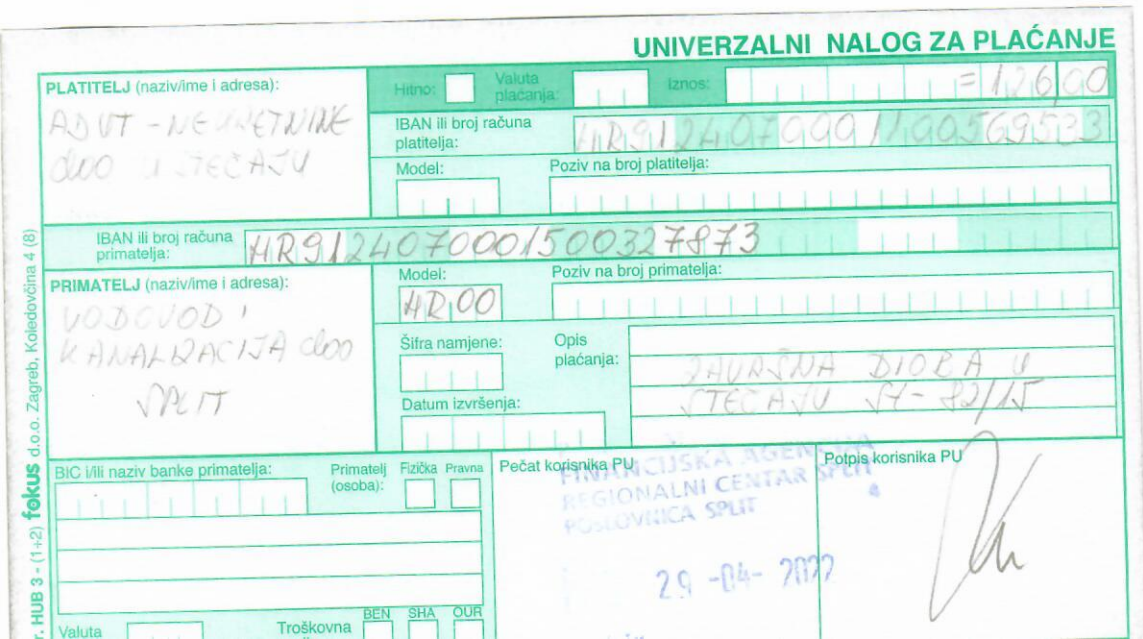 UNIVERZALNI NALOG ZA PLAĆANJE
PLATITELJ (naziv/ime i adresa):
ADUT - NEKRETNINE
doo U STEČAJU
Hitno:
Valuta plaćanja:
Iznos:
=126,00
IBAN ili broj računa platitelja:
HR9124070001100569533
Model:
Poziv na broj platitelja:
IBAN ili broj računa primatelja:
HR9124070001500327873
PRIMATELJ (naziv/ime i adresa):
VODOVOD I
KANALIZACIJA doo
SPLIT
Model:
HR00
Poziv na broj primatelja:
Šifra namjene:
Opis plaćanja:
ZAVRŠNA DIOBA U
STEČAJU St-82/15
Datum izvršenja:
BIC i/ili naziv banke primatelja:
Primatelj (osoba):
Fizička
Pravna
Pečat korisnika PU
FINANCIJSKA AGENCIJA
REGIONALNI CENTAR SPLIT
POSLOVNICA SPLIT
4
29 -04- 2022
Potpis korisnika PU
Valuta
Troškovna
BEN
SHA
OUR
r. HUB 3 - (1+2) fokus d.o.o. Zagreb, Koledovčina 4 (8)